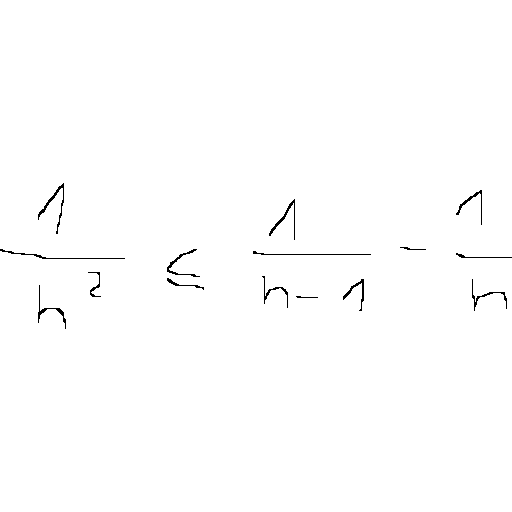 \frac{1}{n^2} \leq \frac{1}{n-1} - \frac{1}{n}